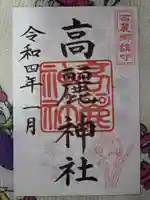 高麗郷鎮守
高麗神社
令和四年一月